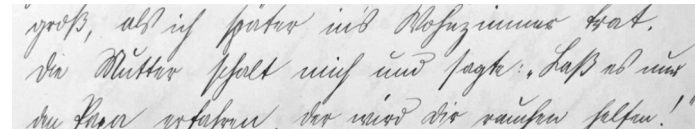 groß, als ich später ins Wohnzimmer trat.
Die Mutter schalt mich und sagte: „Laß es nur
den Papa erfahren, der wird dir rauchen helfen!"